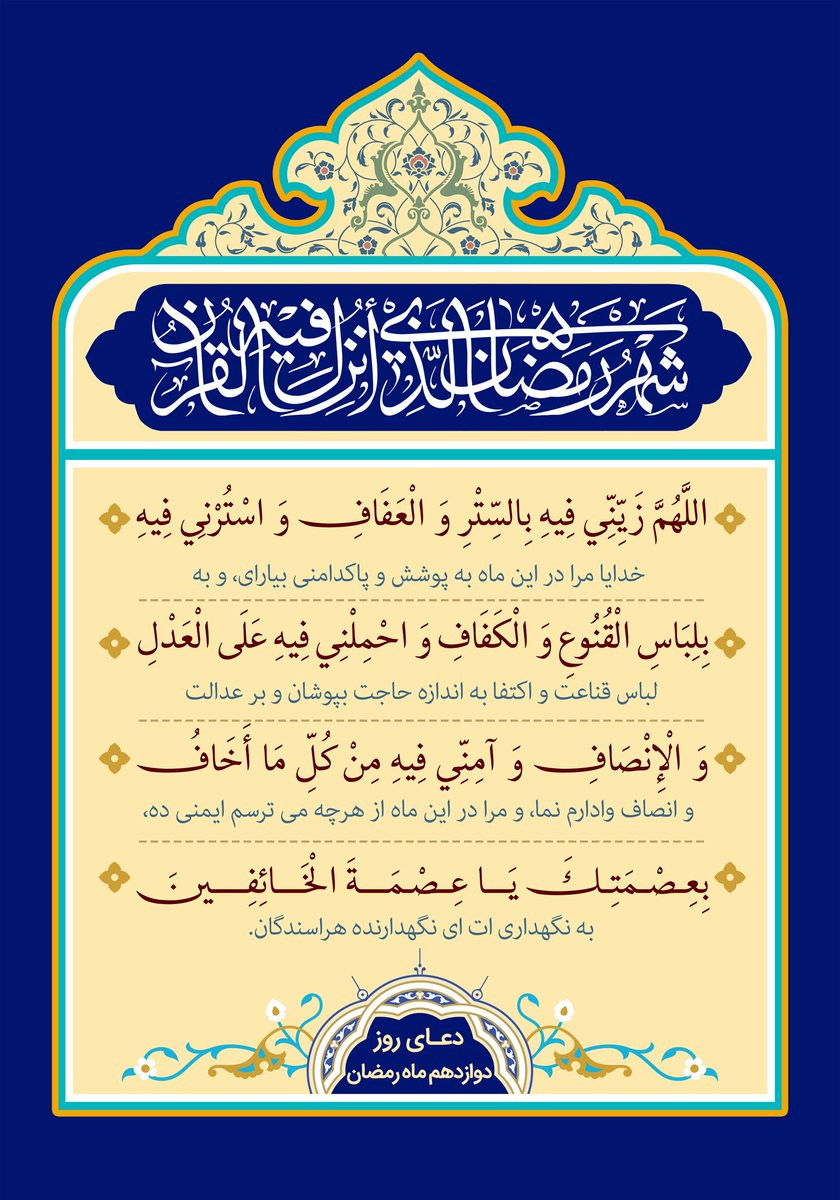 شهر رمضان الذي أنزل فيه القرآن
اللَّهُمَّ زَيِّنِّي فِيهِ بِالسِّتْرِ وَ الْعَفَافِ وَ اسْتُرْنِي فِيهِ
خدایا مرا در این ماه به پوشش و پاکدامنی بیارای، و به
بِلِبَاسِ الْقُنُوعِ وَ الْكَفَافِ وَ احْمِلْنِي فِيهِ عَلَى الْعَدْلِ
لباس قناعت و اکتفا به اندازه حاجت بپوشان و بر عدالت
وَ الْإِنْصَافِ وَ آمِنِّي فِيهِ مِنْ كُلِّ مَا أَخَافُ
و انصاف وادارم نما، و مرا در این ماه از هرچه می ترسم ایمنی ده،
بِعِصْمَتِكَ يَا عِصْمَةَ الْخَائِفِينَ
به نگهداری ات ای نگهدارنده هراسندگان.
دعای روز
دوازدهم ماه رمضان